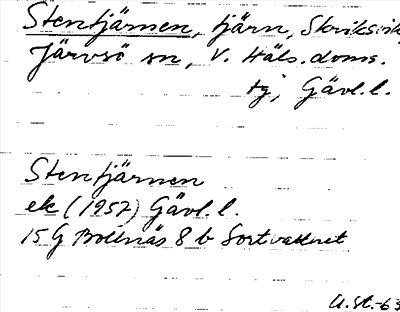 Stentjärnen, tjärn, Skriksvik,
Järvsö sn, V. Häls. doms.
tg, Gävl. l.
Stentjärnen
ek (1957) Gävl. l.
15 G Bollnäs 8 b Sortvattnet
U.St.-63